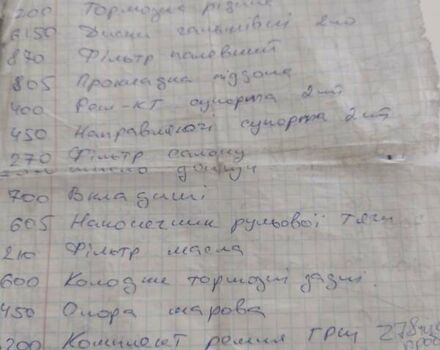 200 Тормозна рідина
6150 Диски гальмівні 2шт
870 Фільтр паливний
805 Прокладка піддона
400 Рем-КТ супорта 2шт
450 Направляючі супорта 2шт
270 Фільтр салону
700 Вкладиші
605 Наконечник рульової тяги
210 Фільтр масла
600 Колодки тормозні задні
450 Опора шарова
200 Комплект ремня ГРМ 278